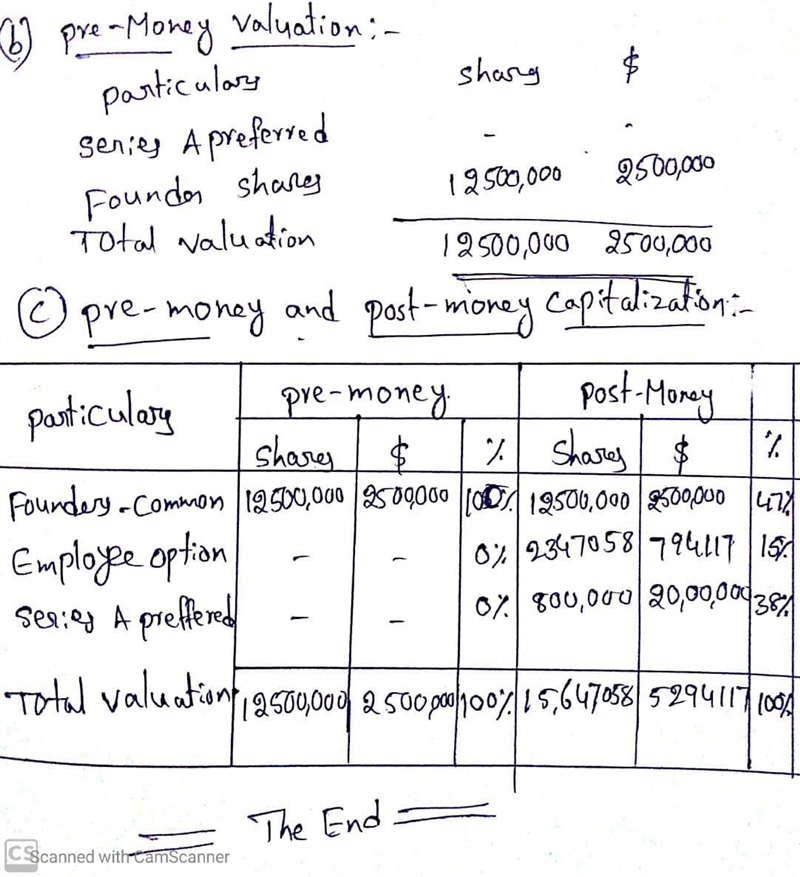 (b) pre-Money valuation:-
particulars shares $
series A preferred - -
Founder shares 12500,000 2500,000
Total valuation 12500,000 2500,000
(c) pre-money and post-money capitalization:-
particulars pre-money. post-Money
shares $ % Shares $ %
Founders-Common 12500,000 2500,000 100% 12500,000 2500,000 47%
Employee option - - 0% 2347058 794117 15%
series A preffered - - 0% 800,000 20,00,000 38%
Total valuation 12500,000 2500,000 100% 15,647058 5294117 100%
The End
CS Scanned with CamScanner